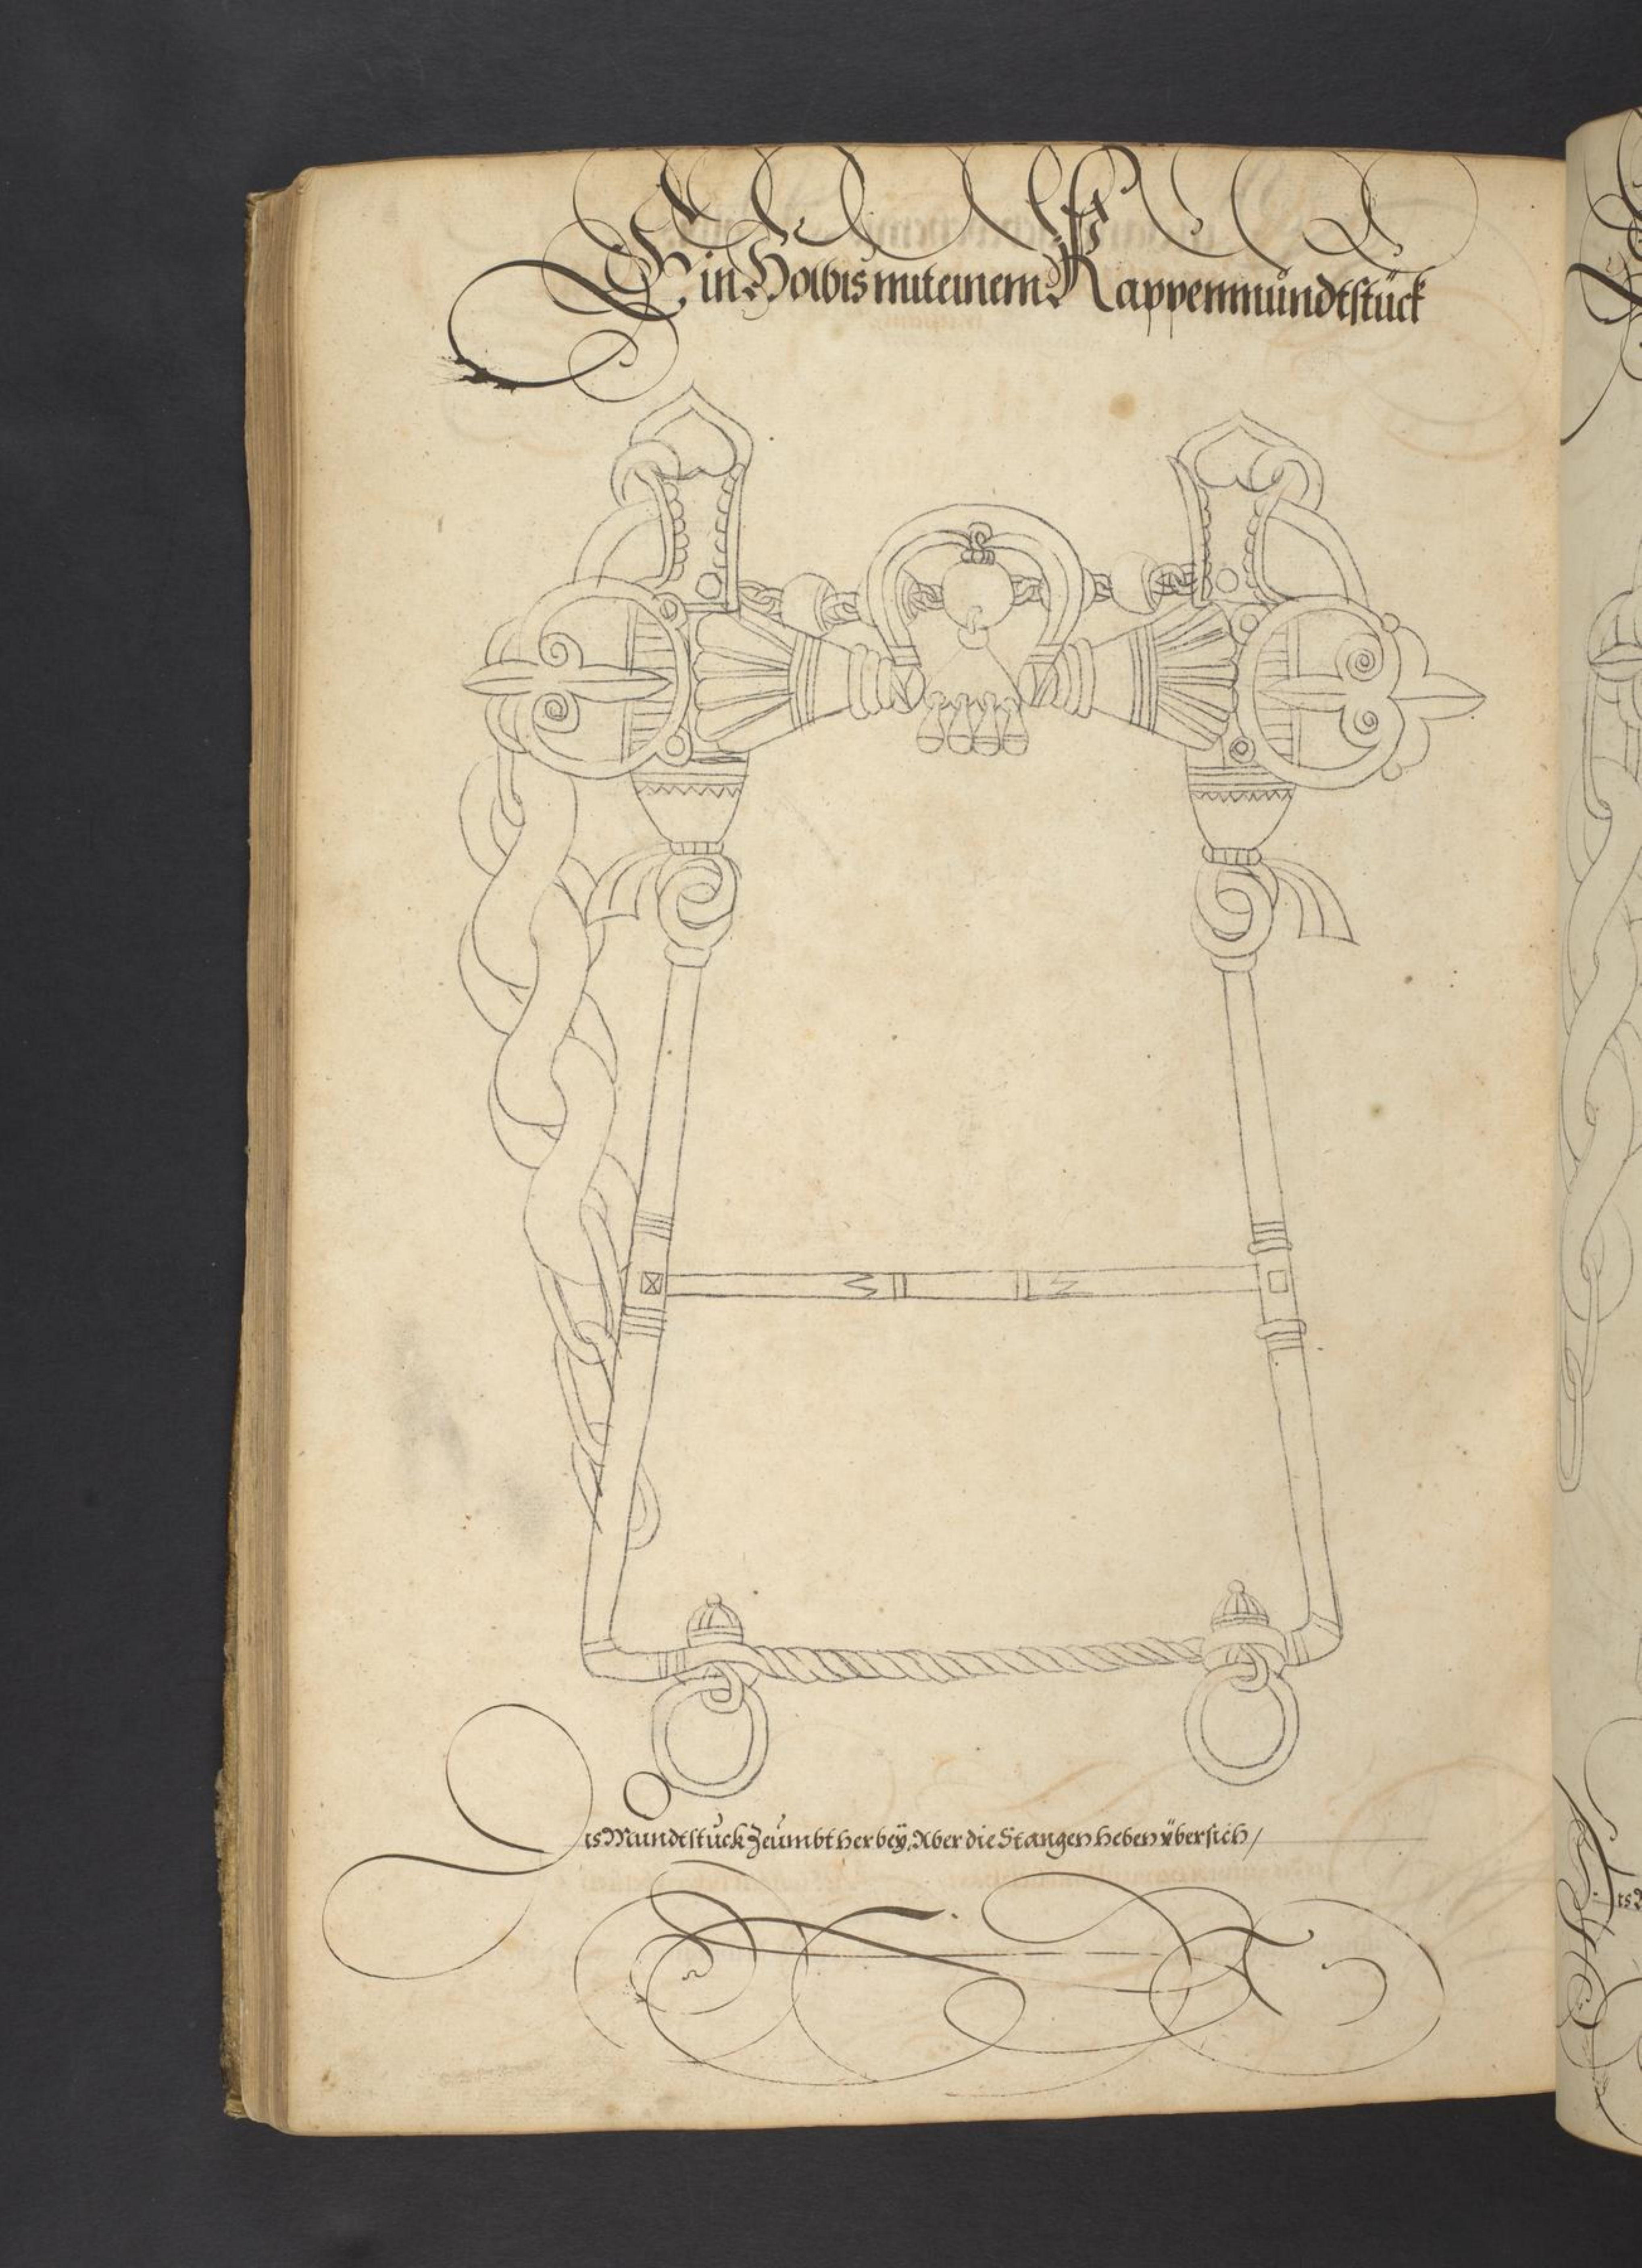 Ein Holbis mit einem Kappenmündtstück
Dis Mundtstück Zeümbt herbeÿ, Aber die Stangen heben übersich /